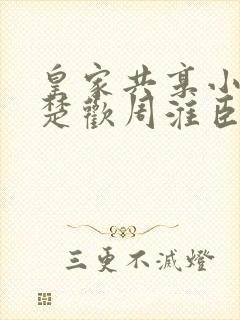 皇家共享小
楚歡周淮臣
三更不滅燈